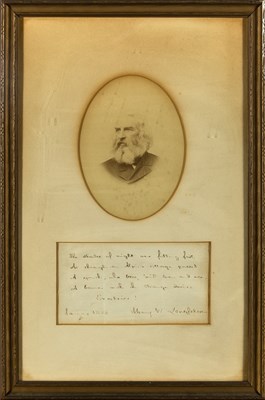 The shades of night were falling fast
As through an Alpine village passed
A youth, who bore, 'mid snow and ice,
A banner with the strange device,
Excelsior!
Henry W. Longfellow